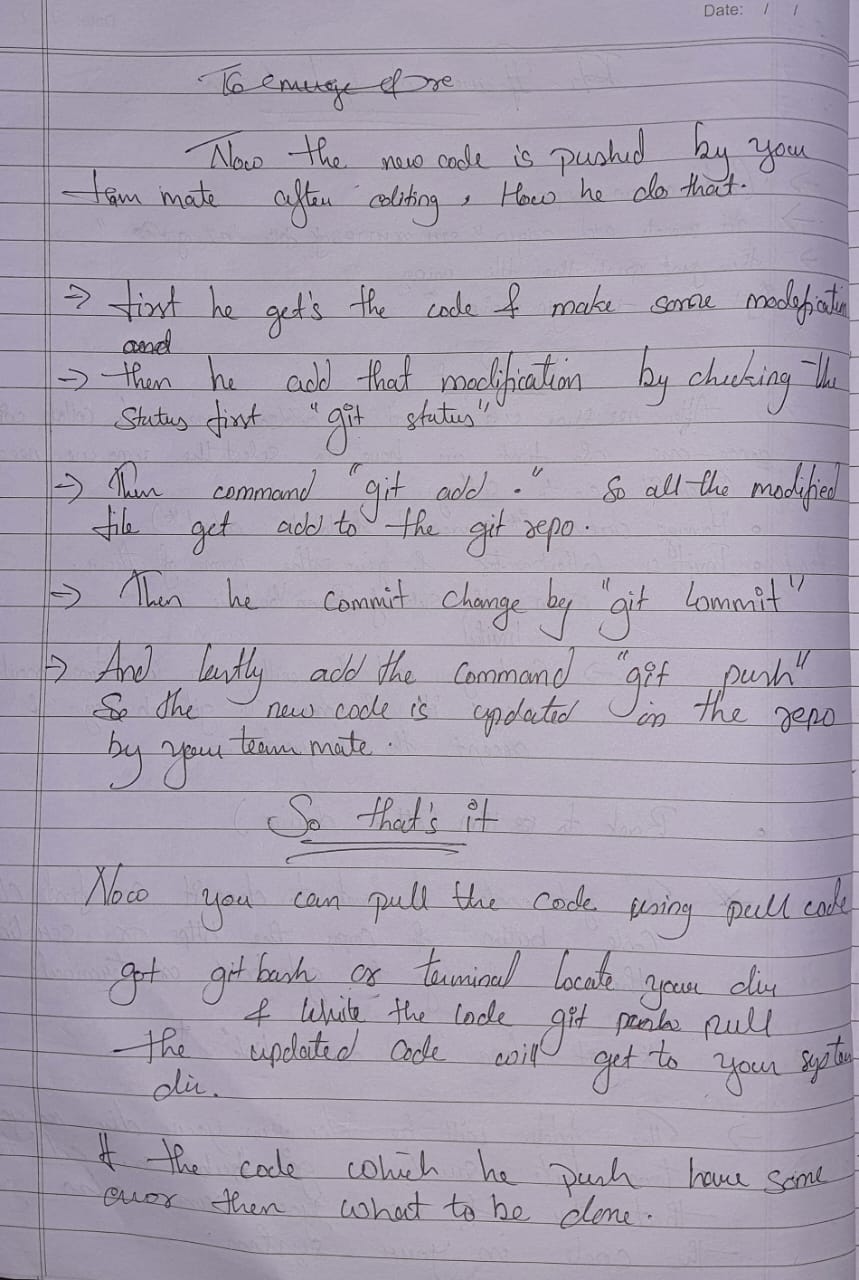 Date: / /
To emerge of re
Now the new code is pushed by your
team mate after editing, How he do that.
→ first he get's the code & make some modification
and
→ then he add that modification by checking the
status first "git status"
→ Then command "git add ." So all the modified
file get add to the git repo.
→ Then he commit change by "git commit"
→ And lastly add the command "git push"
So the new code is updated in the repo
by your team mate.
So that's it
Now you can pull the code using pull code
got git bash or terminal locate your dir
& write the code git pull
the updated code will get to your system
dir.
If the code which he push have some
error then what to be done.